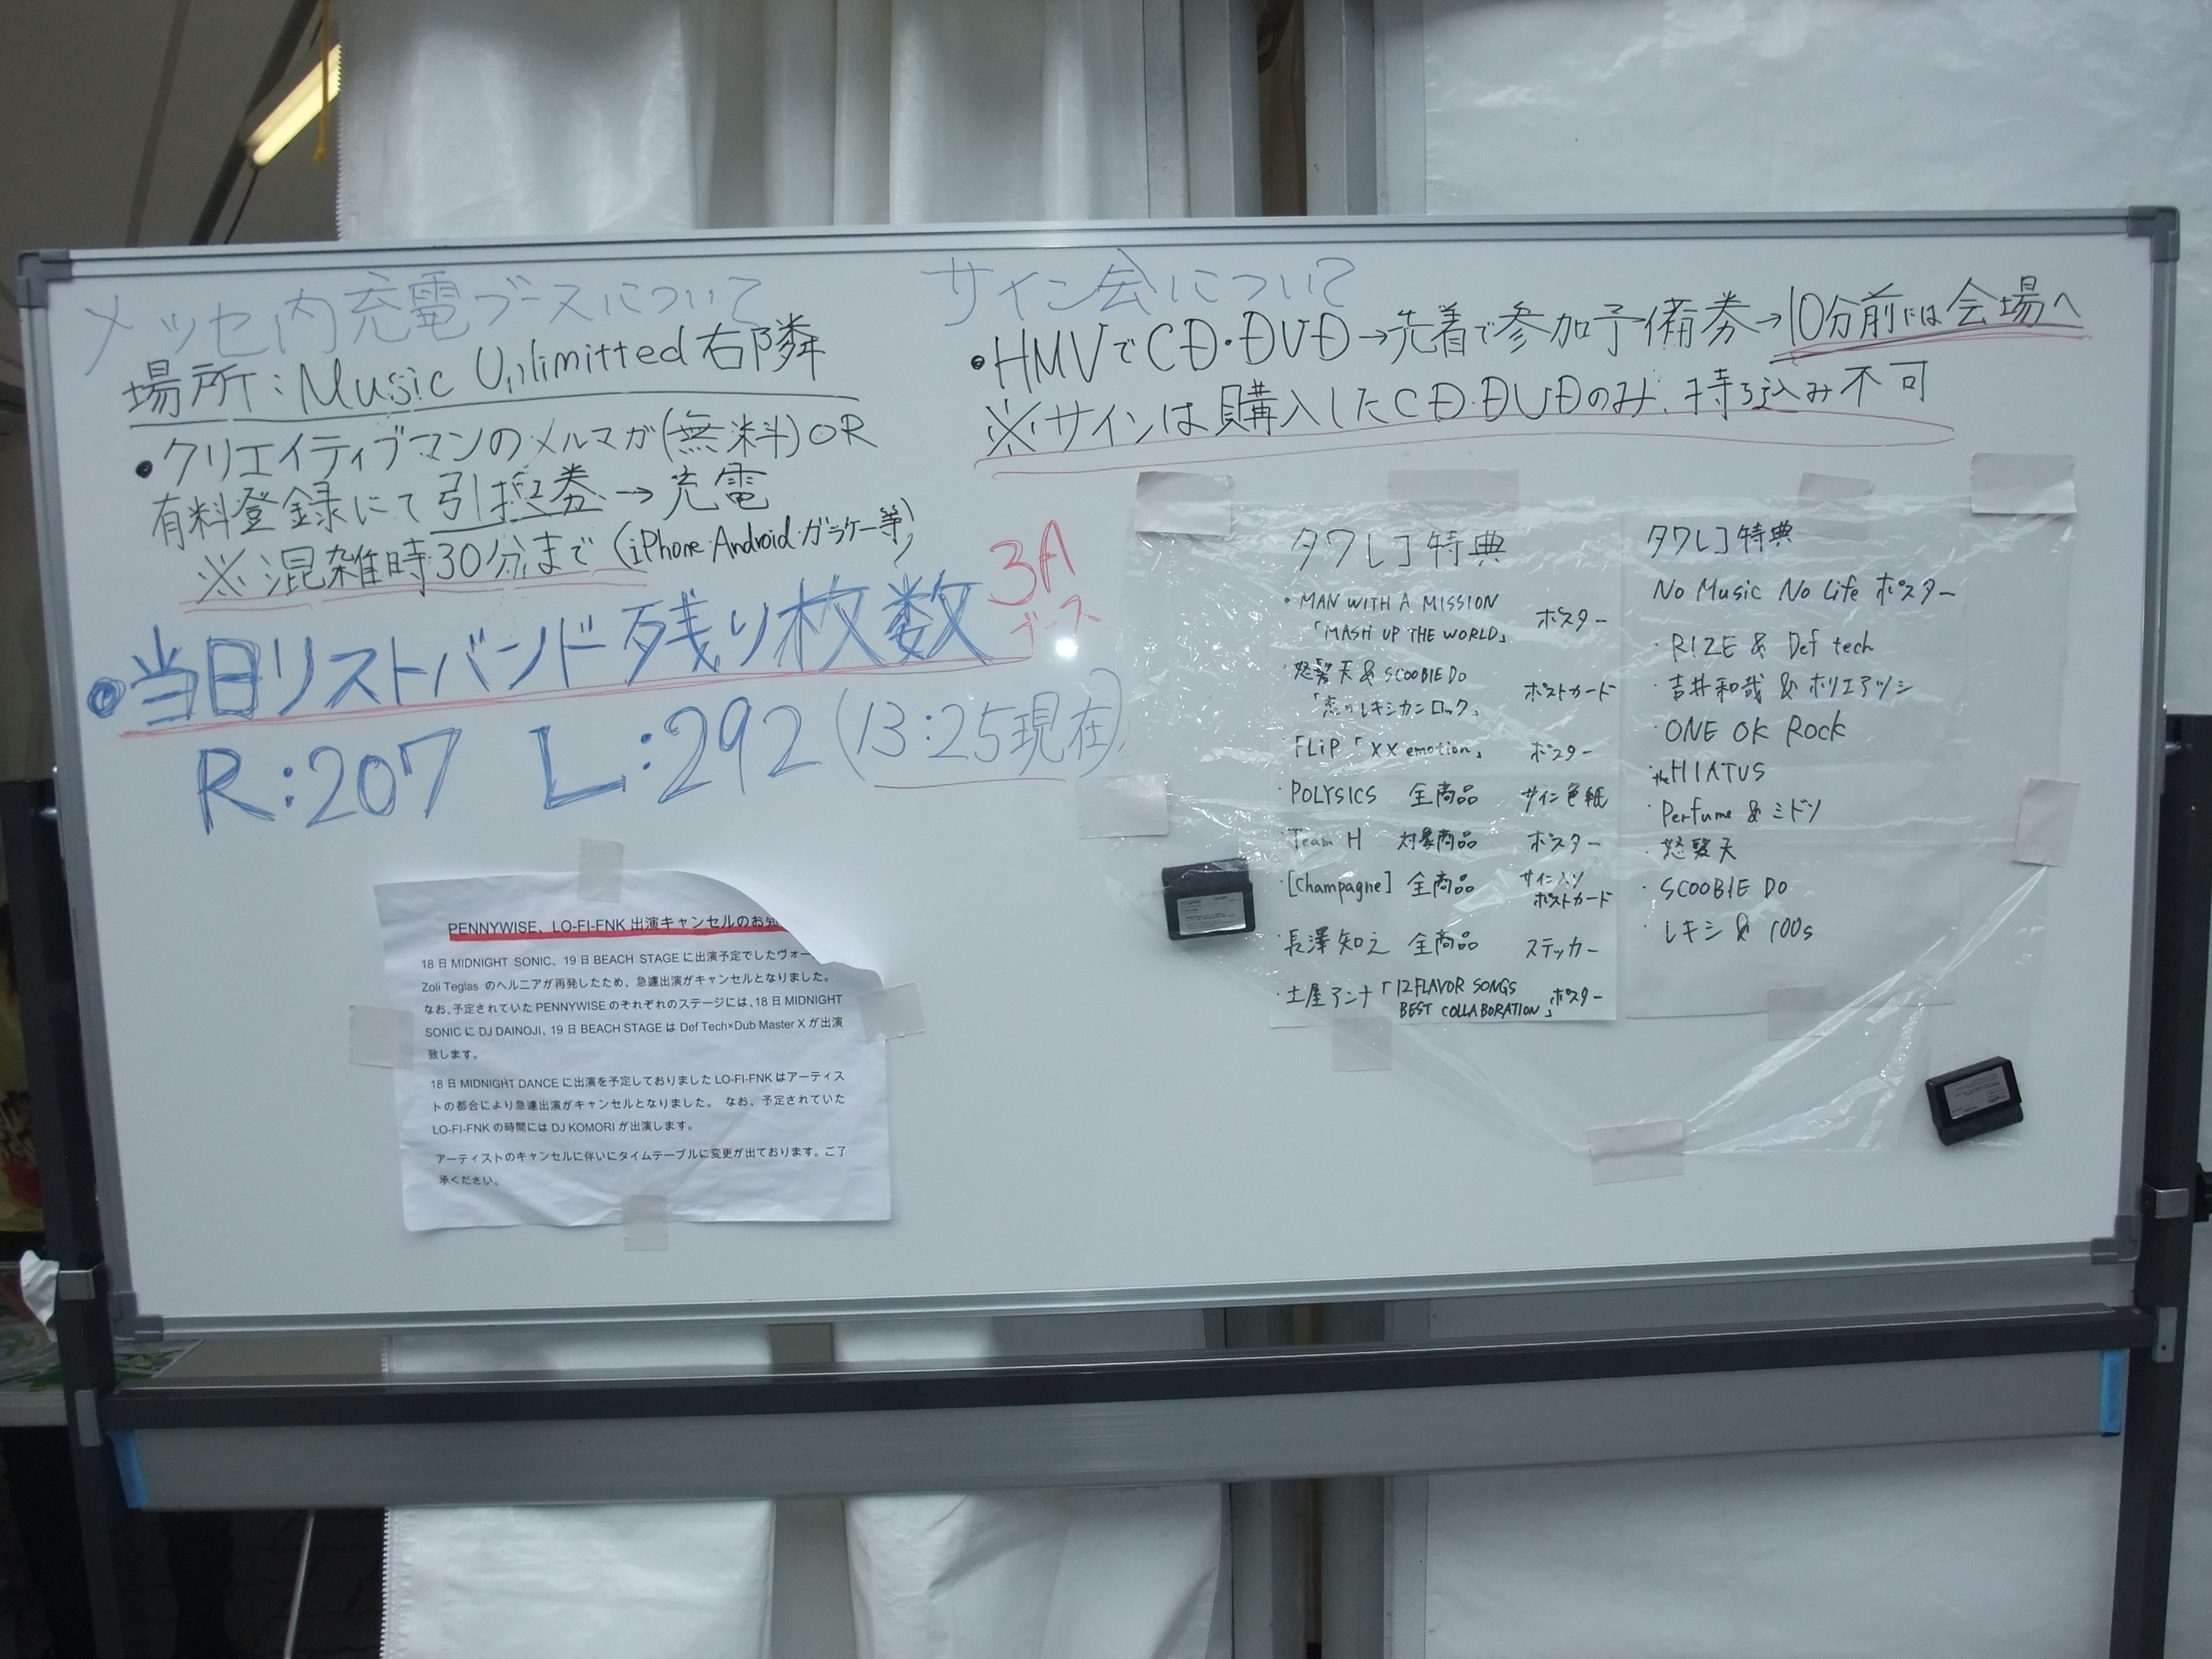 メッセ内充電ブースについて
場所:Music Unlimitted右隣
・クリエイティブマンのメルマガ(無料)OR
有料登録にて引換券→充電
※混雑時30分まで(iPhone・Android・ガラケー等)
・当日リストバンド残り枚数
3A
ブース
R:207 L:292(13:25現在)
PENNYWISE、LO-FI-FNK 出演キャンセルのお知
18日 MIDNIGHT SONIC、19日 BEACH STAGE に出演予定でしたヴォー
Zoli Teglas のヘルニアが再発したため、急遽出演がキャンセルとなりました。
なお、予定されていた PENNYWISE のそれぞれのステージには、18日 MIDNIGHT
SONIC に DJ DAINOJI、19日 BEACH STAGE は Def Tech×Dub Master X が出演
致します。
18日 MIDNIGHT DANCE に出演を予定しておりました LO-FI-FNK はアーティス
トの都合により急遽出演がキャンセルとなりました。 なお、予定されていた
LO-FI-FNK の時間には DJ KOMORI が出演します。
アーティストのキャンセルに伴いにタイムテーブルに変更が出ております。ご了
承ください。
サイン会について
・HMVでCD・DVD→先着で参加予備券→10分前には会場へ
※サインは購入したCD・DVDのみ、持ち込み不可
タワレコ特典
・MAN WITH A MISSION
「MASH UP THE WORLD」 ポスター
・怒髪天&SCOOBIE DO
「恋のレキシカンロック」 ポストカード
・FLiP「XX emotion」 ポスター
・POLYSICS 全商品 サイン色紙
・Team H 対象商品 ポスター
・[Champagne] 全商品 サイン入り
ポストカード
・長澤知之 全商品 ステッカー
・土屋アンナ「12 FLAVOR SONGS
BEST COLLABORATION」ポスター
タワレコ特典
No Music No Life ポスター
・RIZE & Def tech
・吉井和哉 & ホリエアツシ
・ONE OK Rock
・the HIATUS
・Perfume & ミドリ
・怒髪天
・SCOOBIE DO
・レキシ & 100s